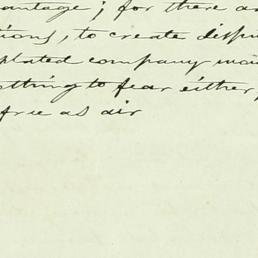 antage; for there a
tions, to create dispu
plated company mai
othing to fear either,
free as air